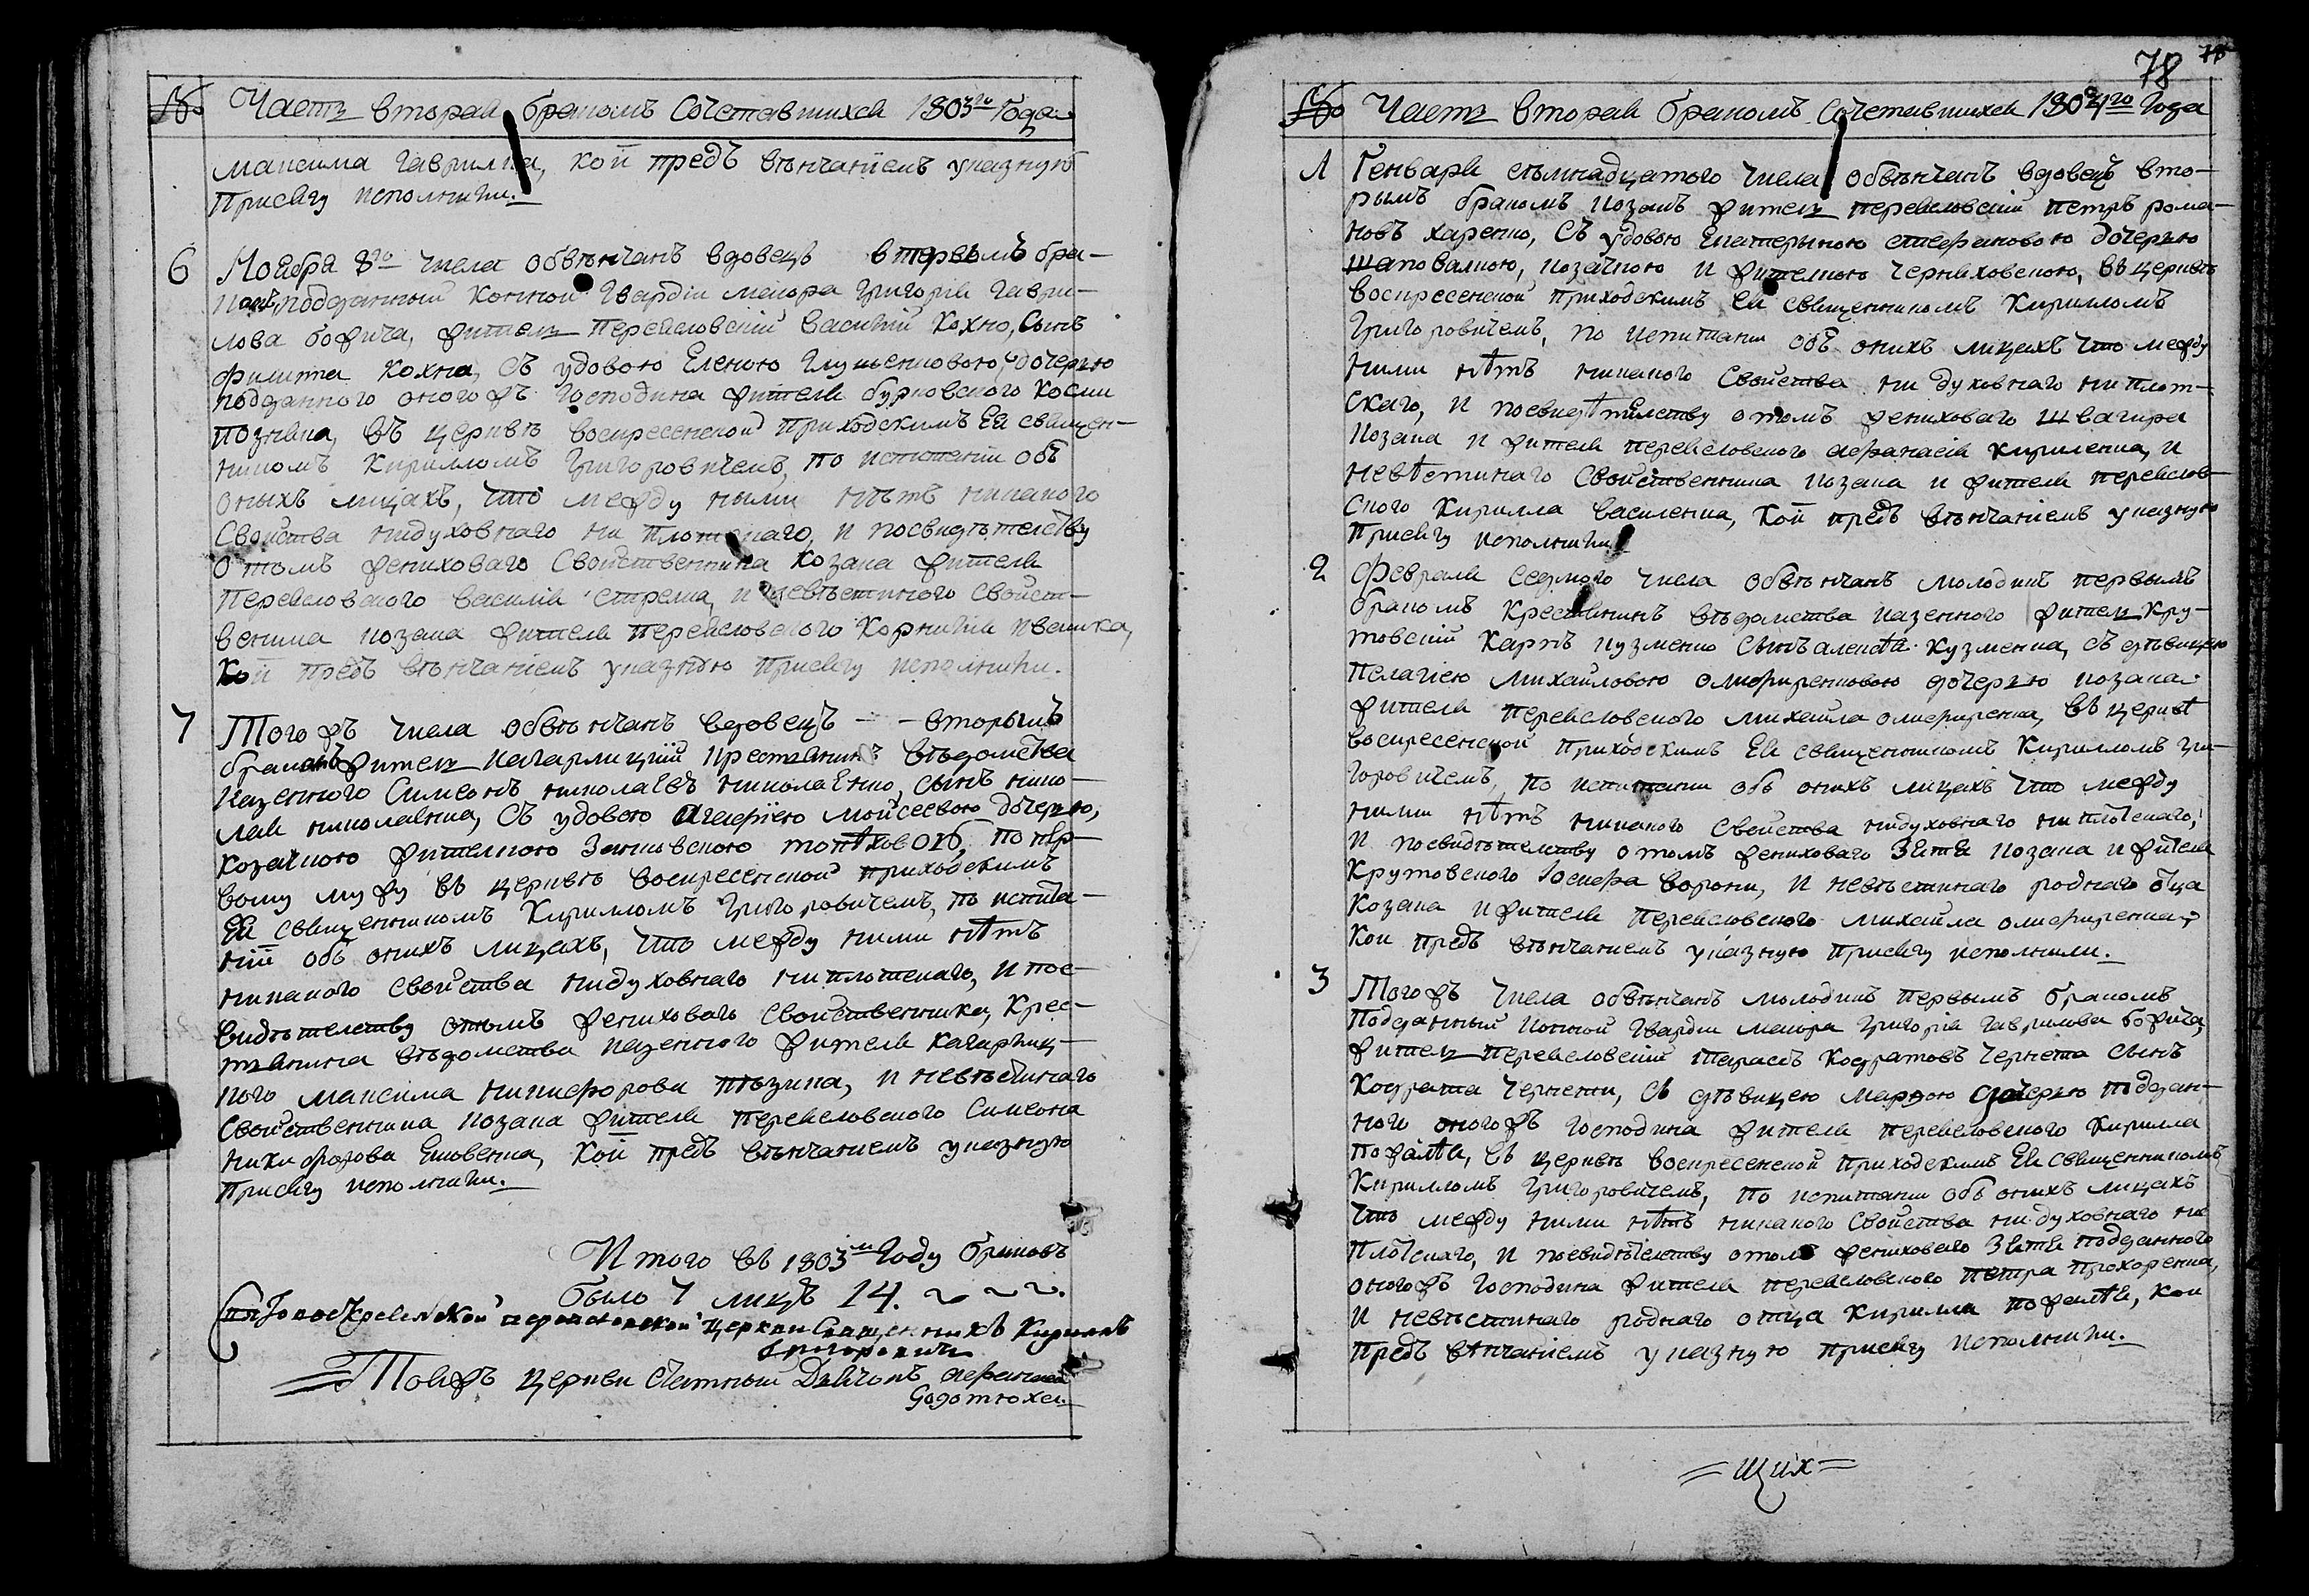 № Часть вторая бракомъ Сочетавшихся 1803го Года
максима гаврилка, кой предъ вѣнчаніемъ указную
Присягу исполнили.
6 Ноября 8го числа обвѣнчанъ вдовецъ вторымъ бра-
комъ подданный Конной Гвардіи маиора Григорія гаври-
лова божича, житель Переяславскій Василий Кохно, Сынъ
филипа Кохна, Съ удовою Еленою Глушенковою, дочерью
подданного оногожъ Господина жителя бурковского Косми
позняка, въ церквѣ воскресенской Приходскимъ Ея священ-
никомъ Кирилломъ Григоровичемъ, по испитаніи объ
оныхъ лицахъ, что между ными нѣтъ никакого
Свойства нидуховнаго ни плотскаго, и посвидѣтелству
отомъ жениховаго Свойственника Козака жителя
Переясловского василія стреша, и невѣстиного свойст-
веника козака жителя переясловского Корнилія ивашка,
кой предъ вѣнчаніемъ указную присягу исполнили.
7 Тогожъ числа обвѣнчанъ вдовецъ - - вторымъ
бракомъ житель кагарлицкій крестянинъ вѣдомства
казенного Симеонъ николаевъ николаенко, сынъ нико-
лая николаенка, Съ удовою Агафіею мойсеевою дочерью,
козачкою жителкою , по пер-
вому мужу въ церквѣ воскресенской приходскимъ
Ея священникомъ Кирилломъ Григоровичемъ, по испита-
ніи объ онихъ лицахъ, что между ними нѣтъ
никакого свойства нидуховнаго ниплотскаго, и пос-
видѣтелству отомъ жениховаго свойственника, Крес-
тянина вѣдомства казенного жителя кагарлиц-
кого максима никифорова пѣзика, и невѣстинаго
Свойственника козака жителя переясловского Симеона
никифорова Ешовенка, кой предъ вѣнчаніемъ указную
Присягу исполнили.
Итого въ 1803м Году браковъ
было 7 лицъ 14.
Переясловской церкви Священникъ Кириллъ
Григоровичъ
Тояжъ церкви Штатный Дьячокъ Афанасій
78
№ Часть вторая бракомъ Сочетавшихся 1804го Года
1 Генваря семнадцатого числа обвѣнчанъ вдовецъ вто-
рымъ бракомъ козакъ житель переясловскій петръ рома-
новъ харенко, Съ удовою Екатериною стефановою дочерью
шаповалкою, козачкою и жителкою черняховскою, въ церквѣ
воскресенской приходскимъ Ея священникомъ Кирилломъ
Григоровичемъ, по испитании объ онихъ лицахъ что между
ними нѣтъ никакого Свойства ни духовнаго ни плот-
скаго, и посвидѣтелству отомъ жениховаго швагира
козака и жителя переясловского афанасія кириленка, и
невѣстинаго Свойственника козака и жителя переяслов-
ского Кирилла василенка, кой предъ вѣнчаніемъ указную
Присягу исполнили
2 Февраля седмого числа обвѣнчанъ молодикъ первымъ
бракомъ Крестянинъ вѣдомства казенного житель кру-
товскій Карпъ кузменко Сынъ алексѣя кузменка, съ дѣвицею
Пелагіею михайловою олифиренковою дочерью козака
жителя переясловского михайла олифиренка, въ церквѣ
воскресенской приходскимъ Ея священникомъ Кирилломъ Гри-
горовичемъ, по испитании объ онихъ лицахъ что между
ними нѣтъ никакого свойства нидуховнаго ниплотскаго,
и посвидѣтелству отомъ жениховаго зятя козака и жителя
Крутовского Иосифа вороны, и невѣстинаго роднаго отца
Козака и жителя переясловского михайла олифиренка,
Кои предъ вѣнчаніемъ указную присягу исполнили.
3 Тогожъ числа обвѣнчанъ молодикъ первымъ бракомъ
Подданный конной Гвардии маиора Григорія гаврилова божича,
житель переясловскій тарасъ кодратовъ чернета сынъ
Кодрата чернети, съ дѣвицею марфою дочерью поддан-
ного оногожъ Господина жителя переясловского Кирилла
, въ церквѣ воскресенской приходскимъ Ея священникомъ
Кирилломъ Григоровичемъ, по испитании объ онихъ лицахъ
что между ними нѣтъ никакого свойства нидуховнаго ни
плотскаго, и посвидѣтелству отомъ жениховаго зятя подданного
оногожъ Господина жителя переясловского петра прохоренка,
и невѣстинаго роднаго отца кирилла , кои
предъ вѣнчаніемъ указную присягу исполнили.